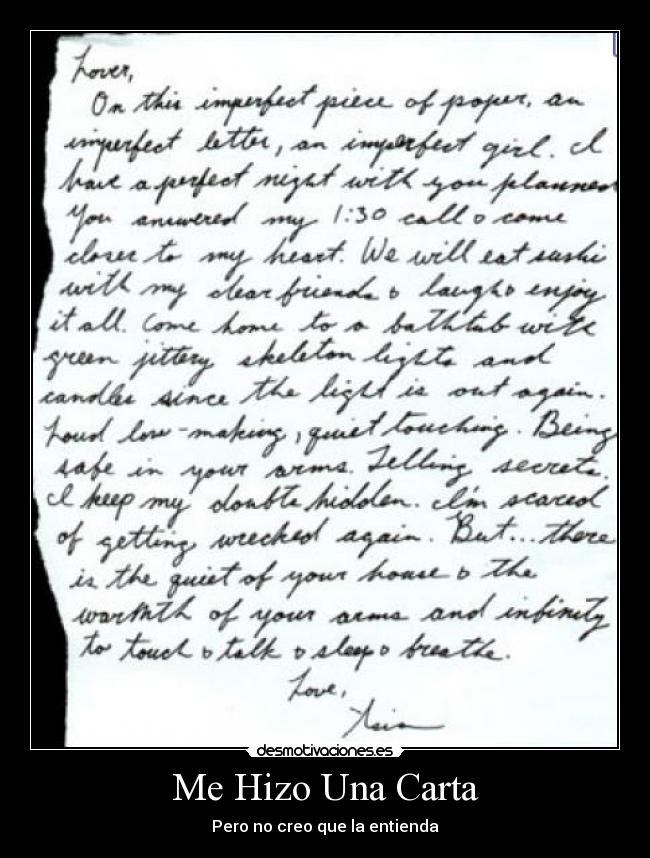 Lover,
On this imperfect piece of paper, an
imperfect letter, an imperfect girl. I
have a perfect night with you planned
You answered my 1:30 call & come
closer to my heart. We will eat sushi
with my dear friends & laugh & enjoy
it all. Come home to a bathtub with
green jittery skeleton lights and
candles since the light is out again.
Loud love-making, quiet touching. Being
safe in your arms. Telling secrets.
I keep my doubts hidden. I'm scared
of getting wrecked again. But... there
is the quiet of your house & the
warmth of your arms and infinity
to touch & talk & sleep & breathe.
Love,
Asia
desmotivaciones.es
Me Hizo Una Carta
Pero no creo que la entienda